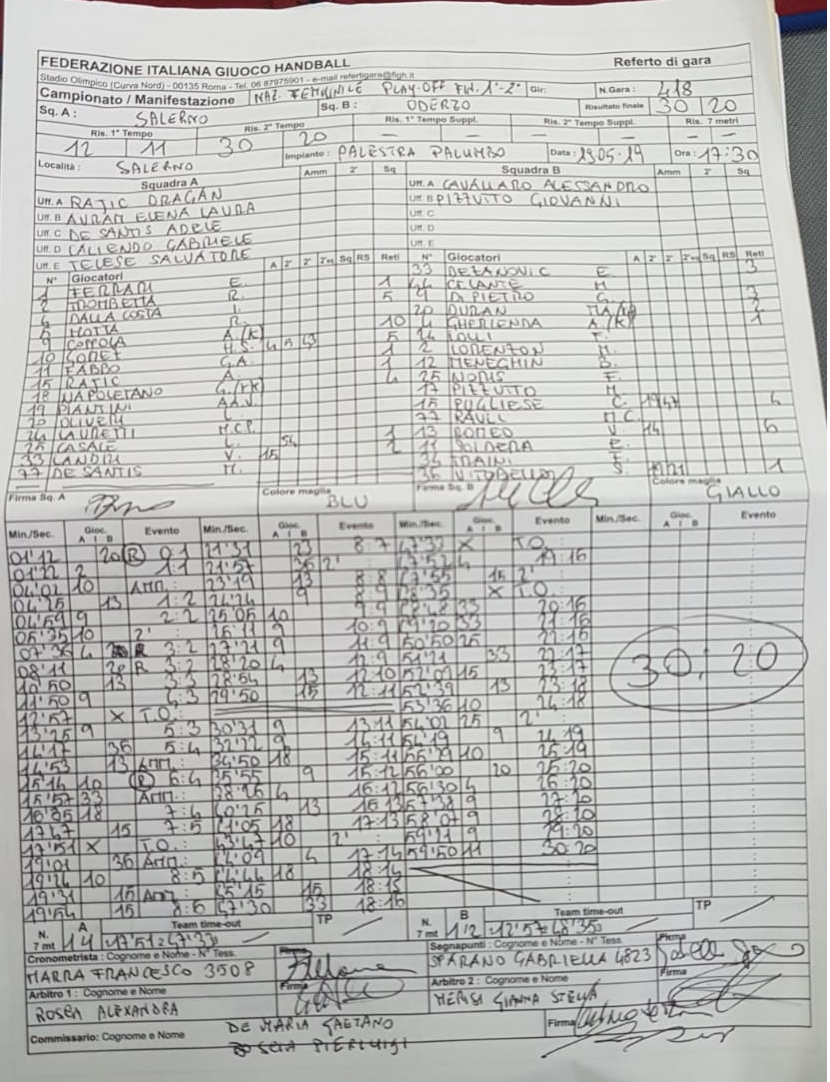 FEDERAZIONE ITALIANA GIUOCO HANDBALL Referto di gara
Stadio Olimpico (Curva Nord) - 00135 Roma - Tel. 06 87975901 - e-mail refertigara@figh.it
Campionato / Manifestazione NAZ. FEMMINILE PLAY-OFF FIN. 1ª-2ª Gir: N.Gara: 418
Sq. A : SALERNO Sq. B : ODERZO Risultato finale 30 20
Ris. 1° Tempo Ris. 2° Tempo Ris. 1° Tempo Suppl. Ris. 2° Tempo Suppl. Ris. 7 metri
12 11 30 20 — — — — — —
Località : SALERNO Impianto : PALESTRA PALUMBO Data : 19.05.19 Ora : 17:30
Squadra A Amm 2' Sq Squadra B Amm 2' Sq
Uff. A RATIC DRAGAN Uff. A CAVALLARO ALESSANDRO
Uff. B AVRAM ELENA LAURA Uff. B PIZZUITO GIOVANNI
Uff. C DE SANTIS ADELE Uff. C
Uff. D CALIENDO GABRIELE Uff. D
Uff. E TELESE SALVATORE Uff. E
N° Giocatori A 2' 2' Sq RS Reti N° Giocatori A 2' 2' Sq RS Reti
1 FERRARI E. 1
2 TROMBETTA R. 5
DALLA COSTA
MOTTA R. 10
9 COPPOLA A.(K) 5
10 GOMET M.S. 1
11 FABBO G.A. 1
15 RATIC A. 4
18 NAPOLETANO G.(VK)
19 PIANTINI
20 OLIVERI L.
24 LAURETTI M.C.P. 1
25 CASALE L. 54 2
33 LANDRI V. 15
77 DE SANTIS M.
33 E. 3
44 CELANTE M.
9 DI PIETRO G. 3
20 DURAN
4 GHERLENDA A.(K) 1
2 LORENZON M.
12 MENEGHIN B.
25 NORIS F.
17 PIZZUITO M.
15 PUGLIESE C. 19 47 4
77 RAULI M.C.
13 ROMEO V. 14 6
11 SOLDERA E.
TRAINI F.
36 S. 1
Firma Sq. A Colore maglia BLU Firma Sq. B Colore maglia GIALLO
Min./Sec. Gioc. A I B Evento Min./Sec. Gioc. A I B Evento Min./Sec. Gioc. A I B Evento Min./Sec. Gioc. A I B Evento
01'12 20 (R) 0:1
01'22 2 1:1
04'02 10 AMM.
04'25 13 1:2
04'59 9 2:2
05'35 10 2'
07'36 4 3:2
08'11 20 R 3:2
10'50 13 3:3
11'50 9 4:3
12'57 X T.O.
13'25 9 5:3
14'17 36 5:4
14'53 13 AMM.
15'14 10 (R) 6:4
15'57 33 AMM.
16'35 18 7:4
17'47 15 7:5
17'51 X T.O.
19'01 36 AMM.
19'24 10 8:5
19'31 15 AMM
19'54 15 8:6
21'31 23 8:7
21'57 36 2'
23'19 13 8:8
24'24 9 8:9
25'05 10 9:9
25'11 9 10:9
27'21 9 11:9
28'20 4 12:9
28'54 13 12:10
29'50 15 12:11
30'31 9 13:11
32'22 9 14:11
34'50 18 15:11
35'55 9 15:12
38'26 4 16:12
40'25 13 16:13
41'05 18 17:13
43'47 10 2'
44'09 4 17:14
44'44 18 18:14
45'15 15 18:15
47'30 33 18:16
47'33 X T.O.
47'52 4 19:16
47'55 15 2'
48'35 X T.O.
48'48 33 20:16
49'20 33 21:16
50'50 25 22:16
51'21 33 22:17
52'09 15 23:17
52'39 13 23:18
53'36 10 24:18
54'02 25 2'
54'19 9 24:19
55'29 10 25:19
56'00 20 25:20
56'30 4 26:20
57'38 9 27:20
58'07 9 28:20
59'11 9 29:20
59'50 11 30:20
30:20
N. 7 mt A 1/4 Team time-out 17'51 = 47'33 TP N. 7 mt B 1/2 Team time-out 12'57 = 48'35 TP
Cronometrista : Cognome e Nome - N° Tess. Firma Segnapunti : Cognome e Nome - N° Tess. Firma
MARRA FRANCESCO 3508 SPARANO GABRIELLA 4823
Arbitro 1 : Cognome e Nome Firma Arbitro 2 : Cognome e Nome Firma
ROSCA ALEXANDRA MERISI GIANNA STELLA
Commissario: Cognome e Nome DE MARIA GAETANO Firma
BOSCIA PIERLUIGI